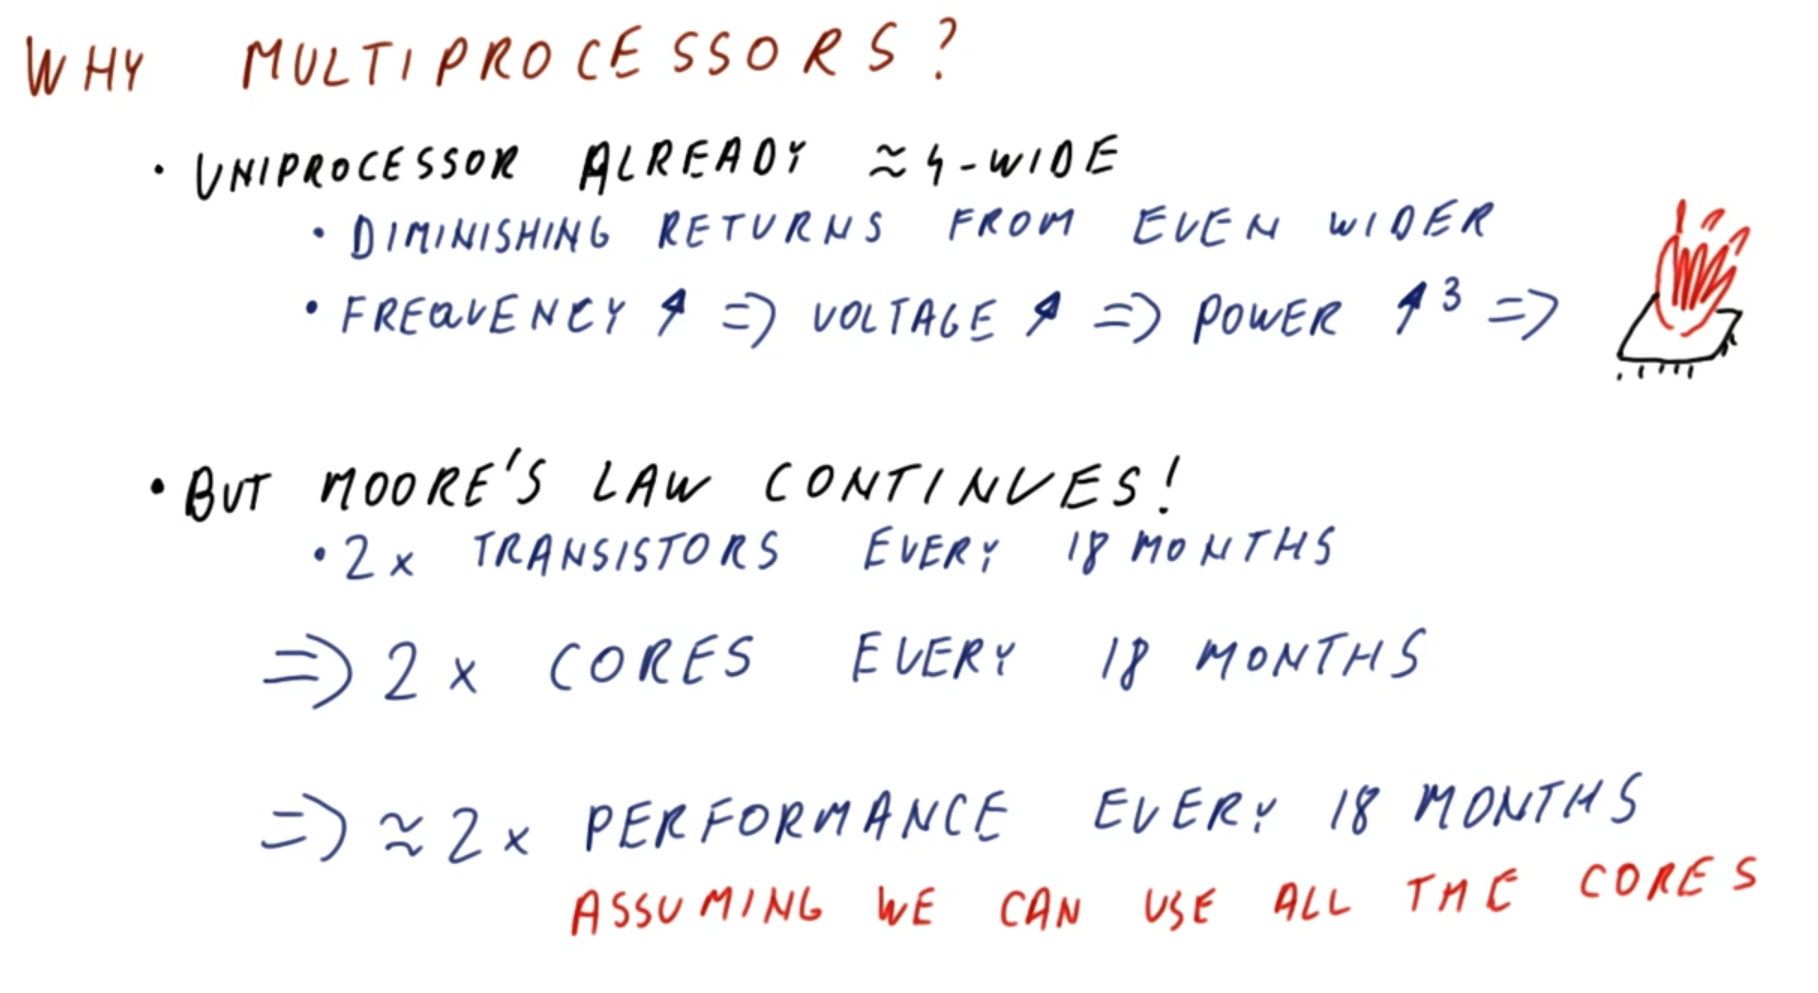 WHY MULTIPROCESSORS?
• UNIPROCESSOR ALREADY ≈ 4-WIDE
• DIMINISHING RETURNS FROM EVEN WIDER
• FREQUENCY ↑ => VOLTAGE ↑ => POWER ↑³ =>
• BUT MOORE'S LAW CONTINUES!
• 2x TRANSISTORS EVERY 18 MONTHS
=> 2x CORES EVERY 18 MONTHS
=> ≈ 2x PERFORMANCE EVERY 18 MONTHS
ASSUMING WE CAN USE ALL THE CORES